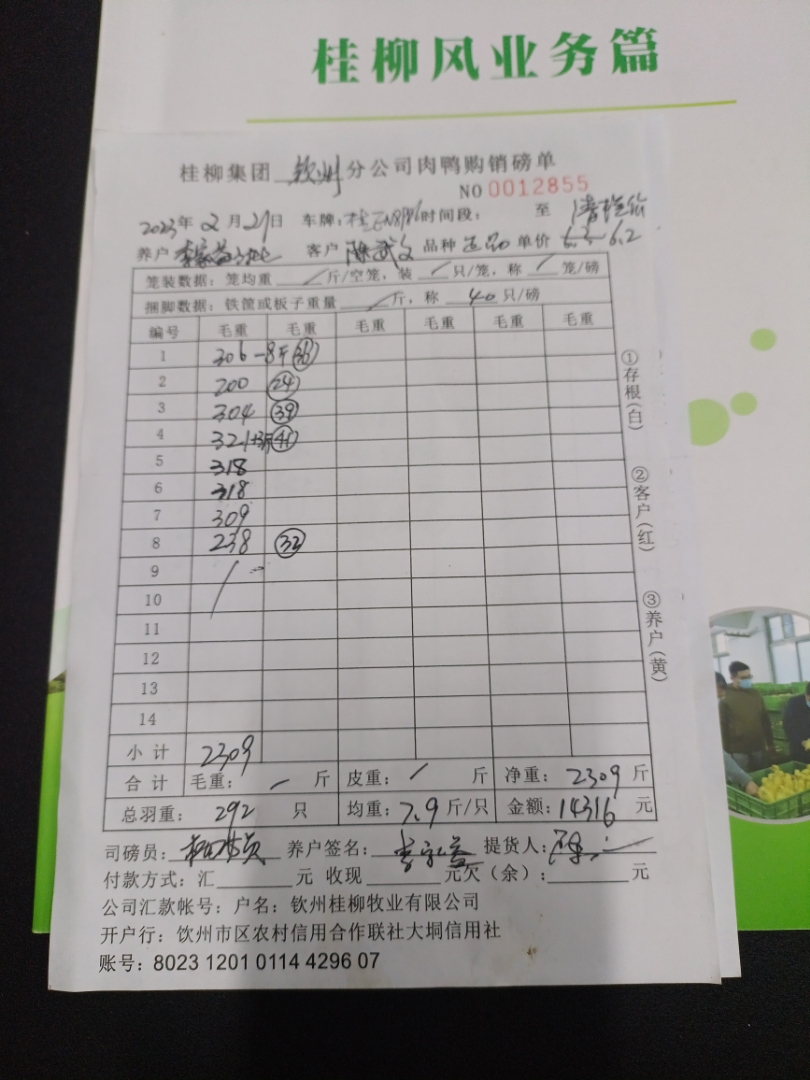 桂柳风业务篇
桂柳集团 钦州 分公司肉鸭购销磅单
NO 0012855
2023年2月27日 车牌: 时间段: 至
养户 客户 陈武文 品种 单价 6.2
笼装数据: 笼均重 / 斤/空笼, 装 / 只/笼, 称 / 笼/磅
捆脚数据: 铁筐或板子重量 / 斤, 称 40 只/磅
编号 毛重 毛重 毛重 毛重 毛重 毛重
1 306 -8斤 38
2 200 24
3 304 39
4 321 +3斤 41
5 318
6 318
7 309
8 238 32
9 /
10
11
12
13
14
小计 2309
合计 毛重: / 斤 皮重: / 斤 净重: 2309 斤
总羽重: 292 只 均重: 7.9 斤/只 金额: 14316 元
司磅员: 养户签名: 提货人:
付款方式: 汇 元 收现 元欠(余): 元
公司汇款帐号: 户名: 钦州桂柳牧业有限公司
开户行: 饮州市区农村信用合作联社大垌信用社
账号: 8023 1201 0114 4296 07
①存根(白)
②客户(红)
③养户(黄)